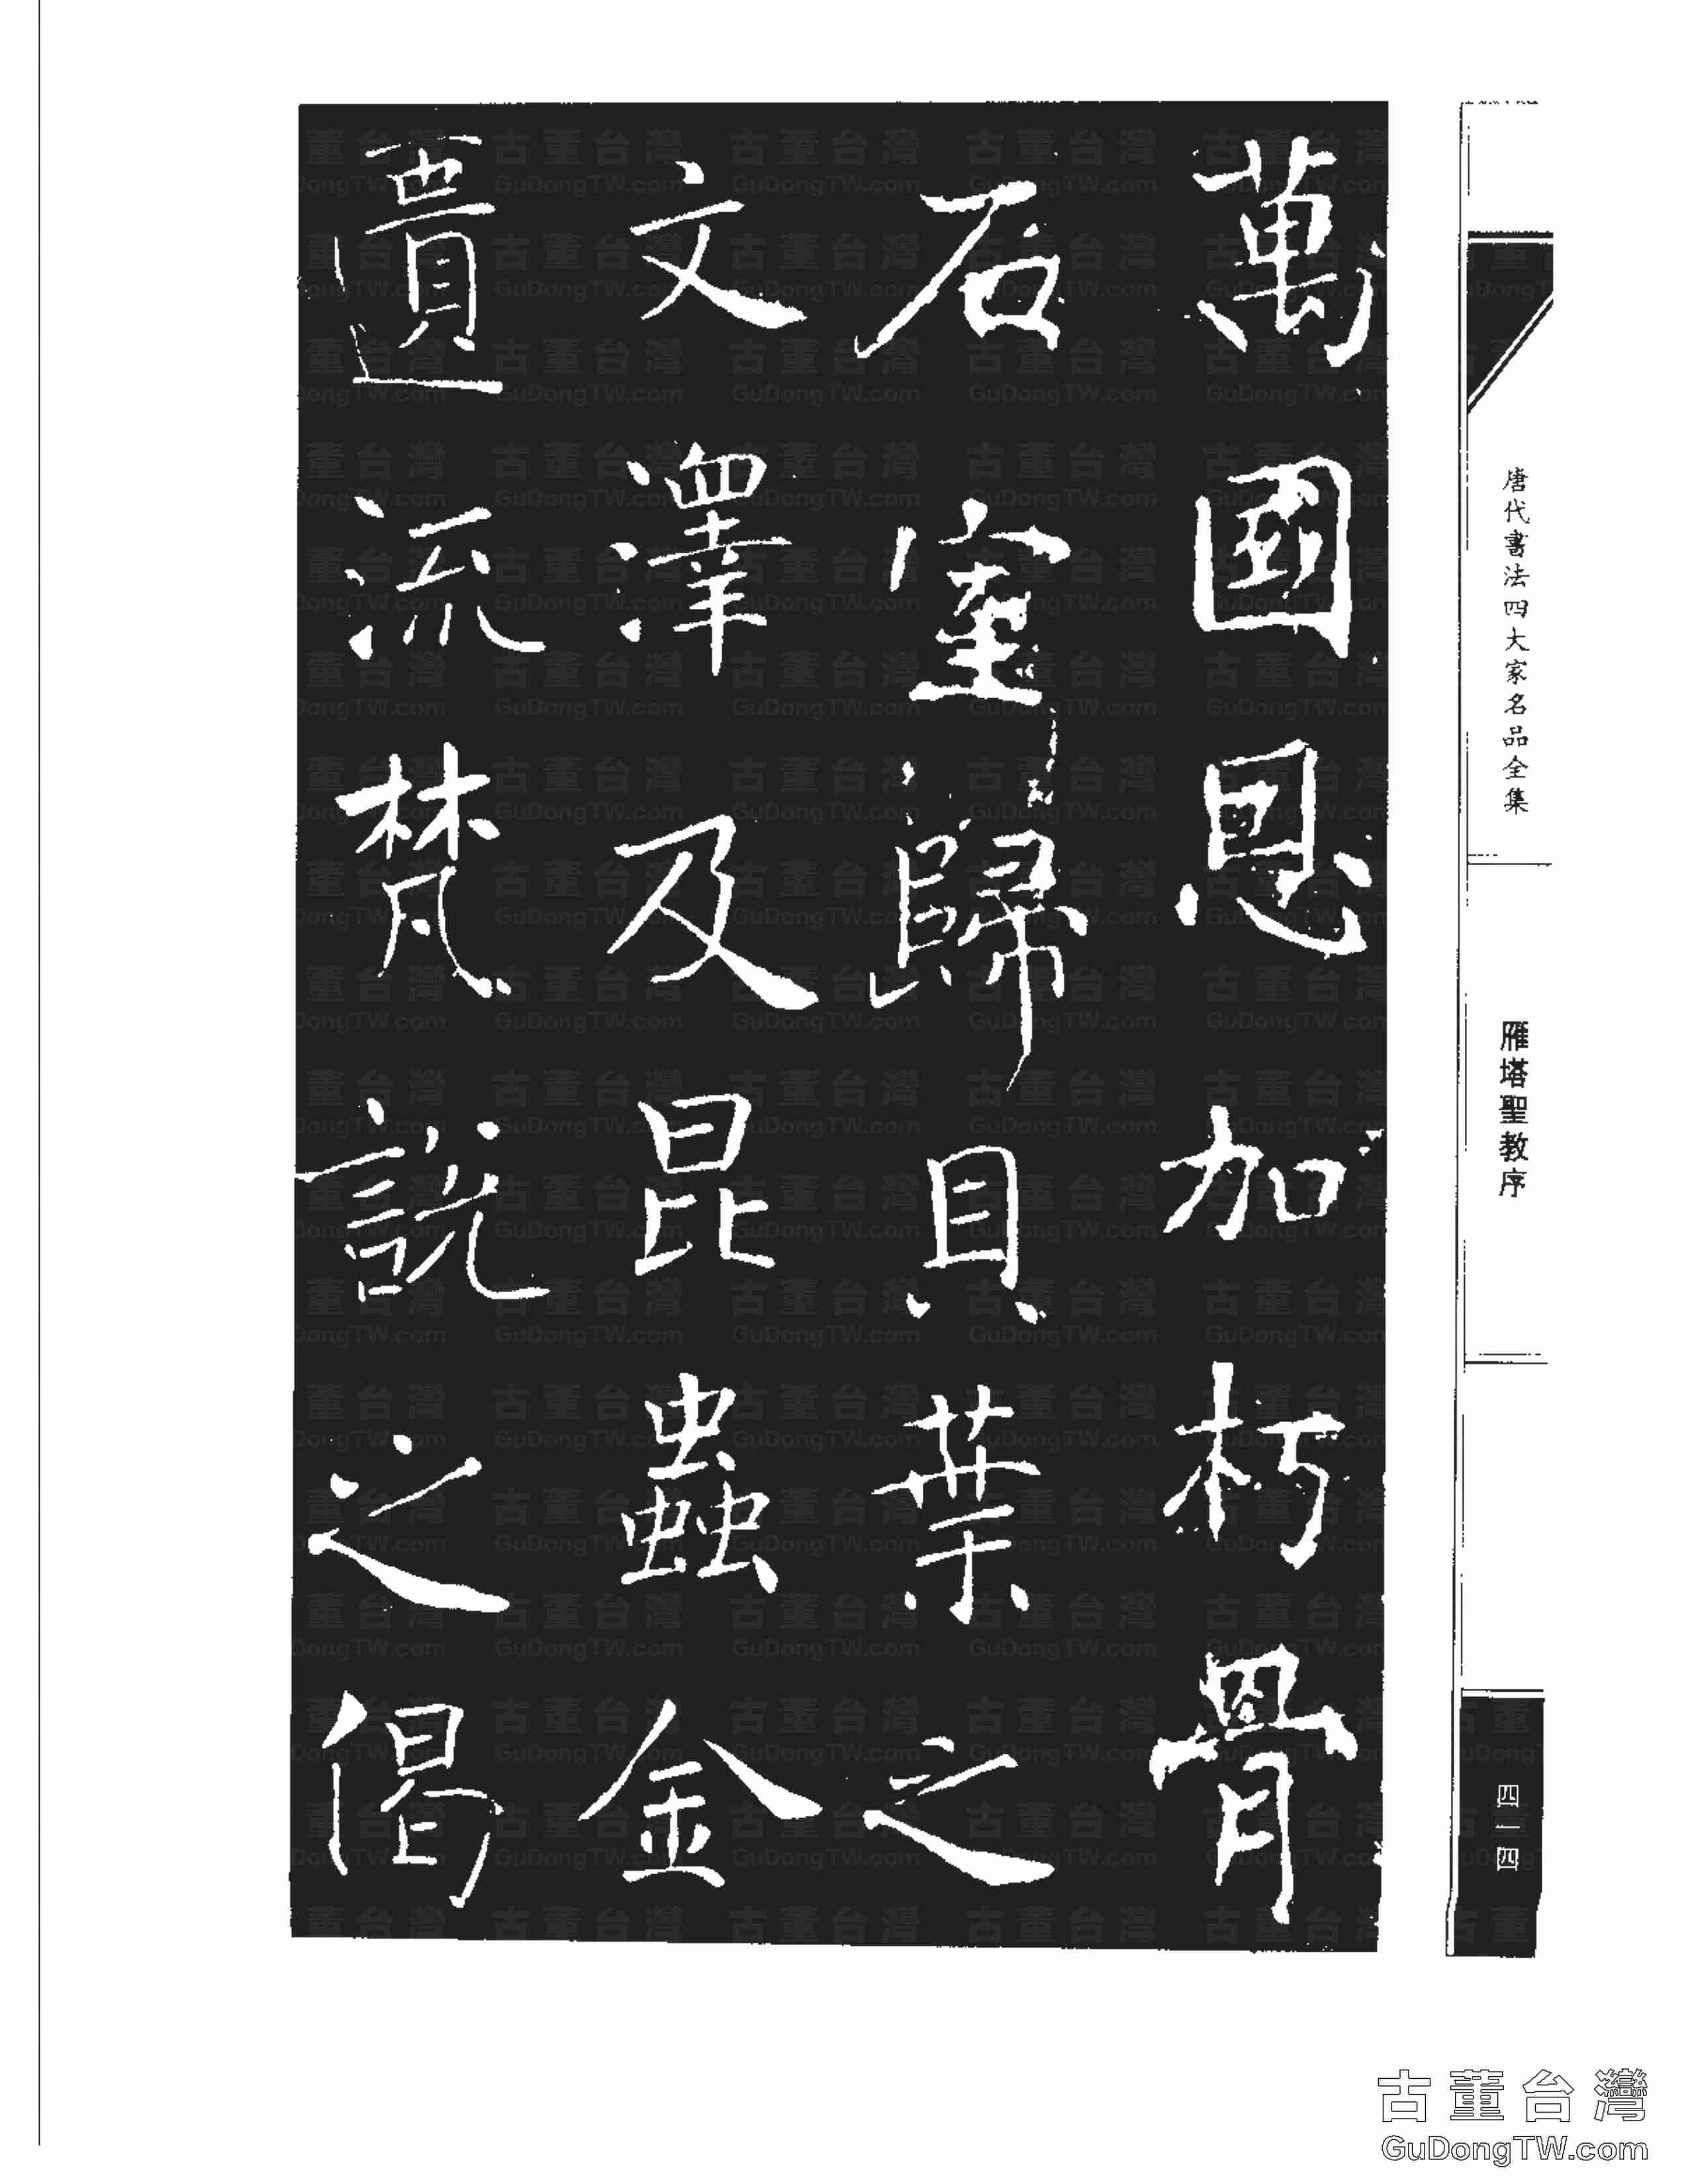 唐代書法四大家名品全集
雁塔聖教序
四一四
萬國恩加朽骨
石室歸貝葉之
文澤及昆蟲金
匱流梵說之偈
古董台灣
GuDongTW.com